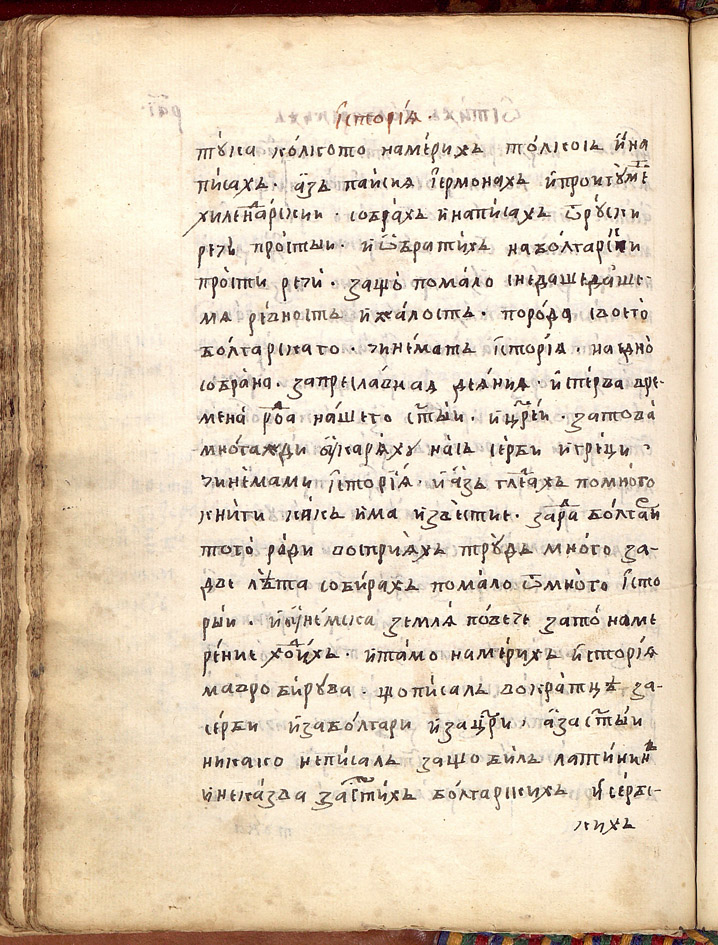 Їсторїѧ ·
тука колкото намерихъ толкоѡ и на
писахъ · азъ паисия їермонахъ и проигуме
хилендарскии · собрахъ и написахъ ѿ руски
речи простыи · и ѿбратихъ на болгарски
прости речи · защо помало снедаше
мя ревность и жалость · по рода своего
болгарскаго · чинематъ їсторїя · наедно
собрана · за преславная деяния · и сперва вре-
мена рода нашего ст҃ыи · и цр҃еи · затова
многажди укаряху нась серби и греци ·
чинемами їсторїя · и азъ глѧдахъ по много
книги какъ има известие · за рода болгар
того ради восприяхъ трудъ много за-
две лѣта собирахъ помало ѿ много їсто
рыи · и у немска земля повече за то наме
рение ходихъ · и тамо намерихъ їсторїя
мавро бирува · що писалъ вократцѣ за-
серби и за болгари и за цр҃и · а за ст҃ыи
никако неписалъ защо билъ латининъ
и неказва за ст҃ихъ болгарскихъ и сербс-
кихъ